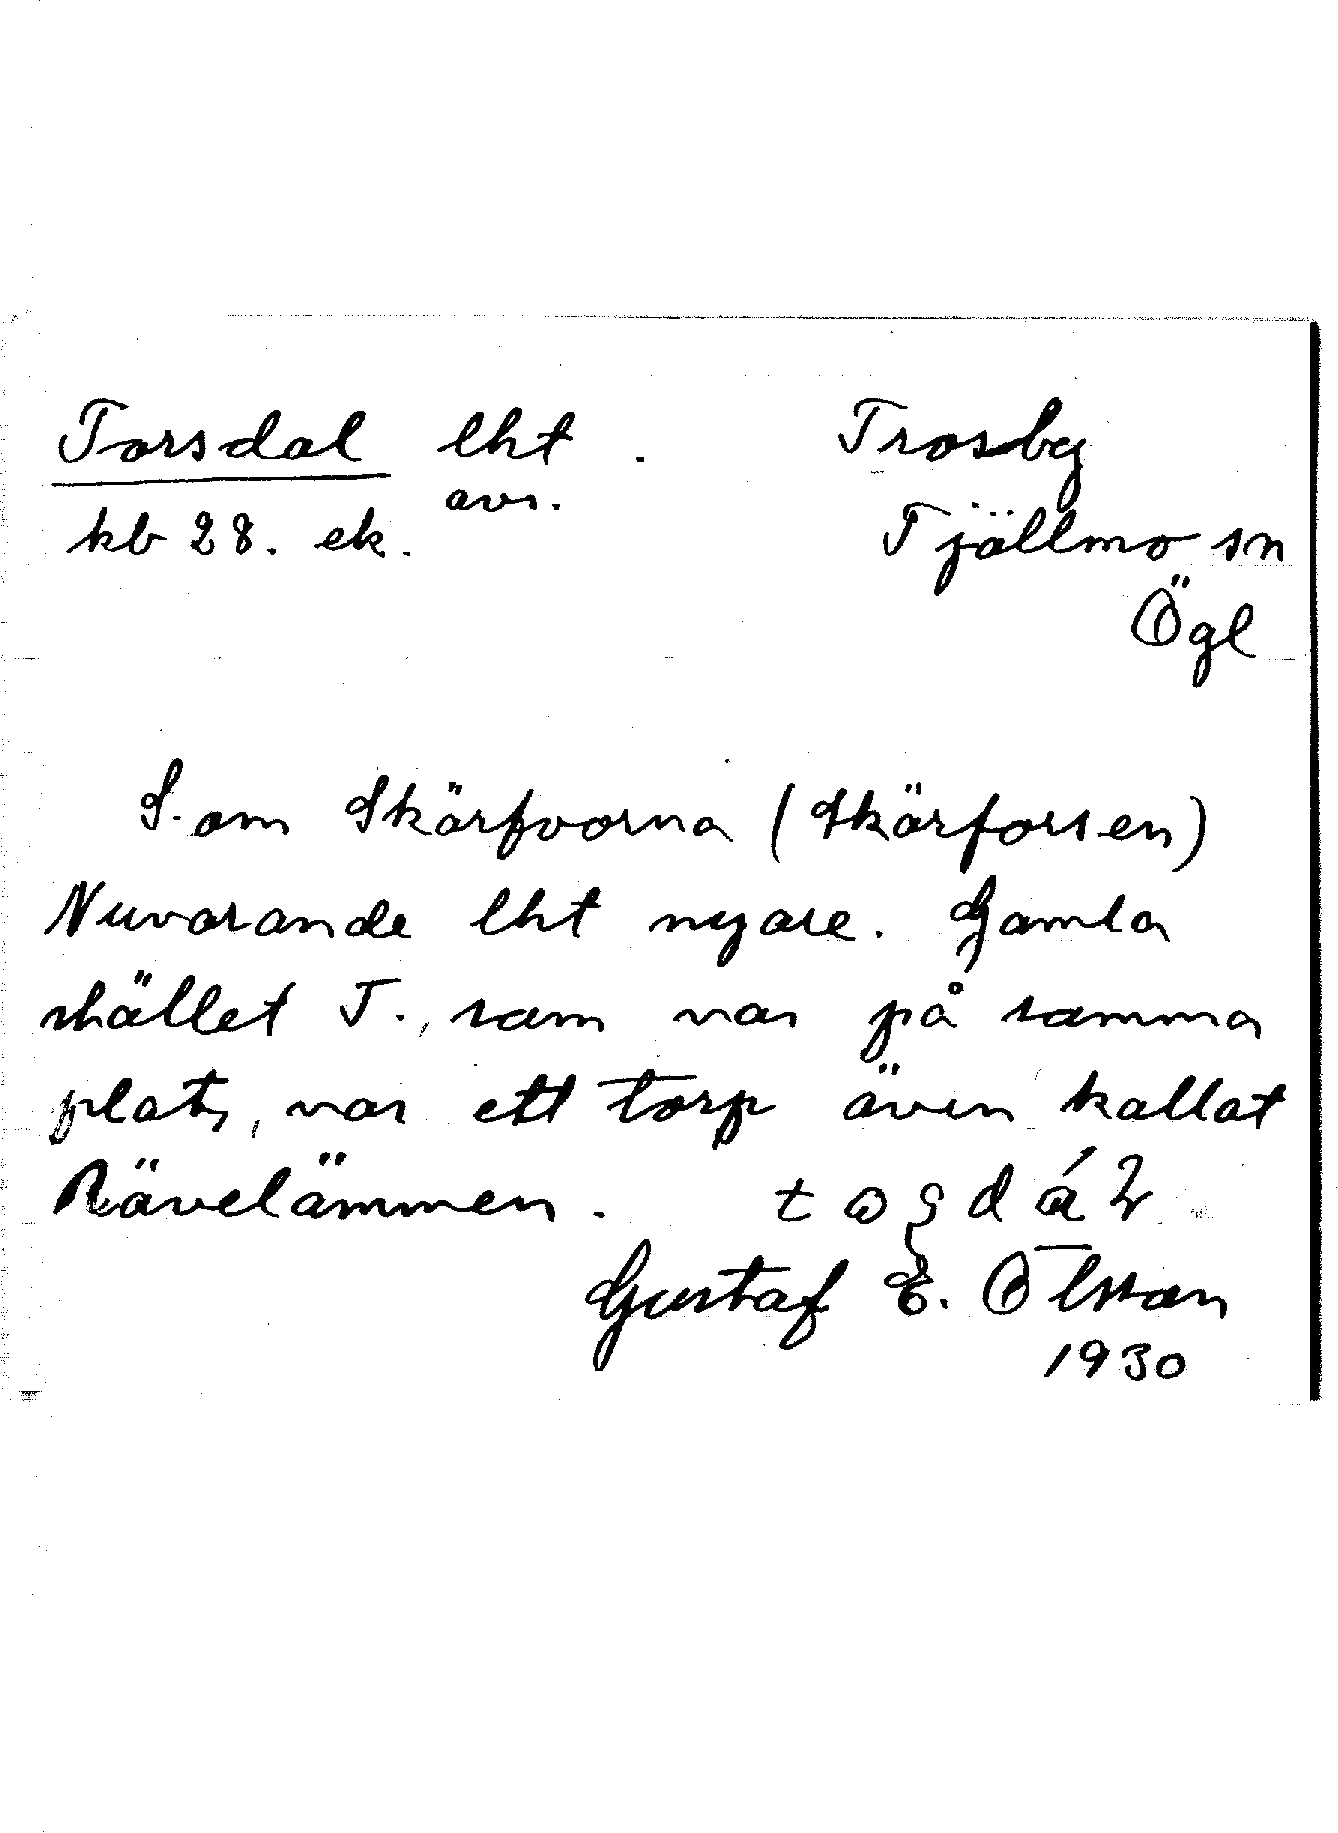 Torsdal lht . Trosby
avs.
kb 28. ek. Tjällmo sn
Ögl
S. om Skärfvorna (Skärforsen)
Nuvarande lht nyare. Gamla
stället T., som var på samma
plats, var ett torp även kallat
Rävelämmen.
Gustaf E. Olsson
1930